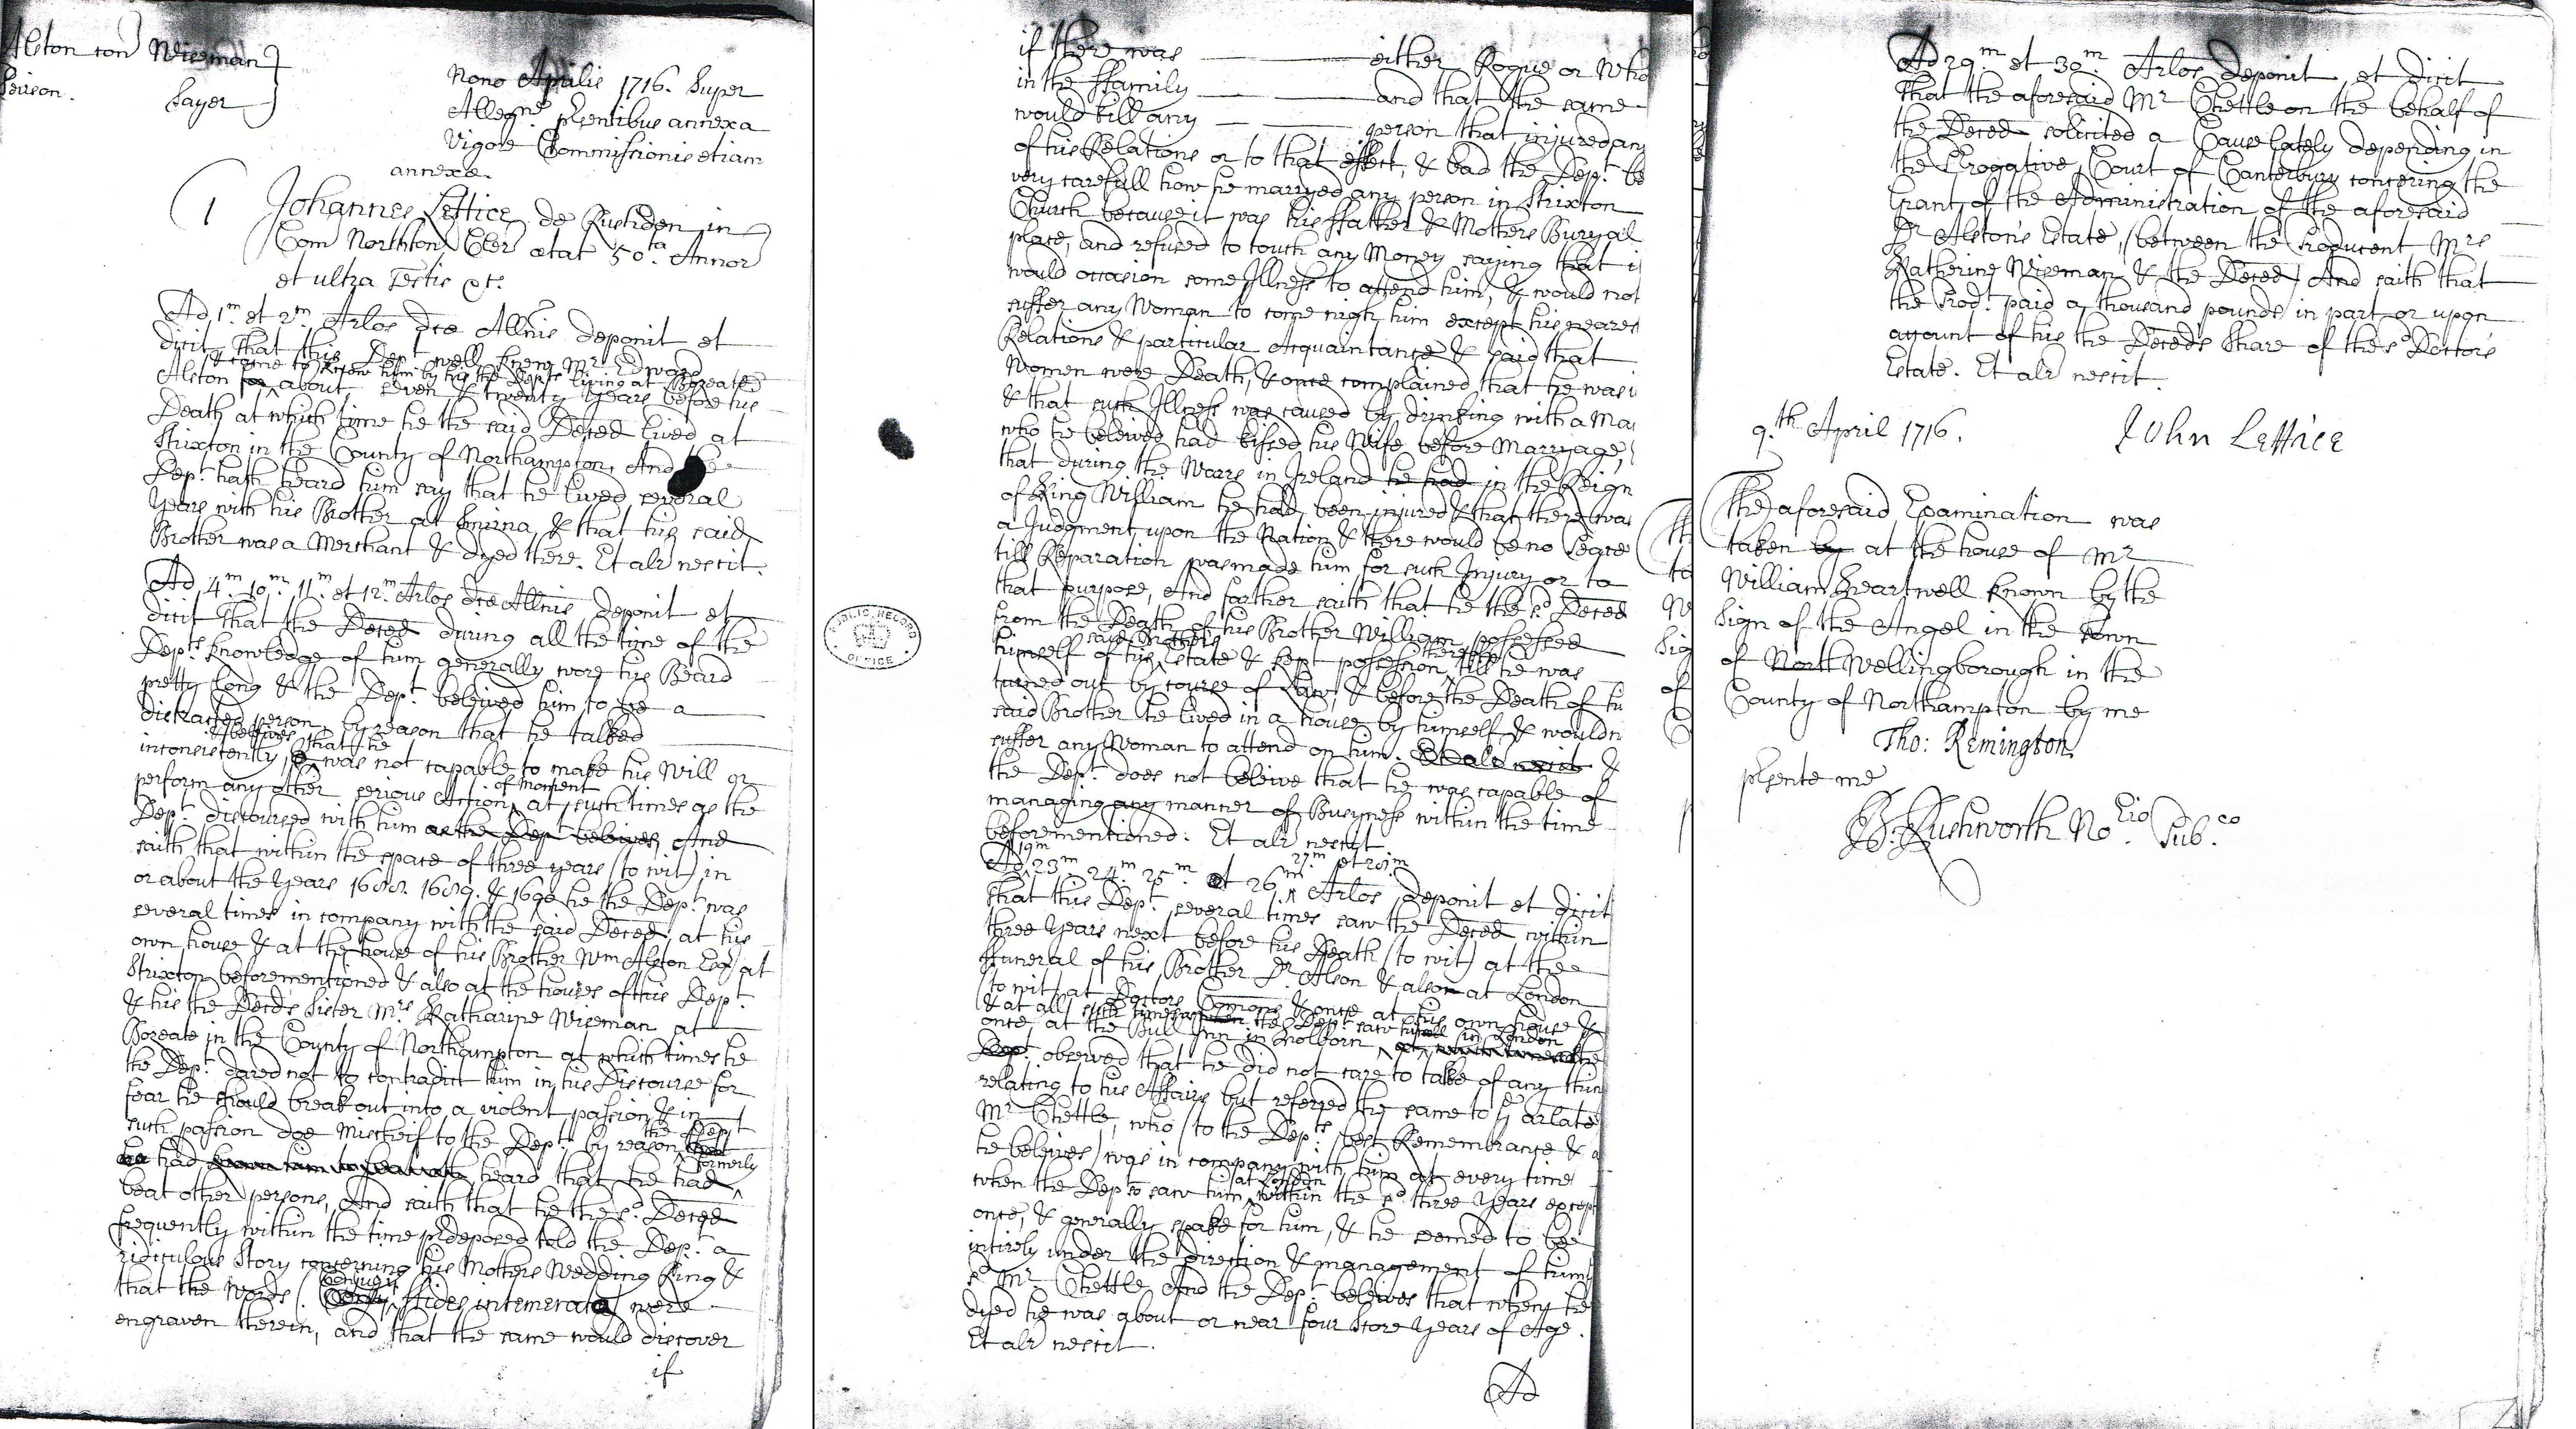 Alston con Wiseman
Peirson. Sayer
Nono Aprilis 1716. Super
Allegne pſentibus annexa
Vigore Commissionis etiam
annexa.
1 Johannes Lettice de Rushden in
Com Northton Cler ætat 50.ta Annor
et ultra Testis &c.
Ad 1m et 2m Arlos dcæ Allnis deponit et
dicit That this Dept well knew Mr Edward
& came to know him by his the Depts living at Bozeate
Alston for about seven & twenty years before his
Death at which time he the said Deced lived at
Strixton in the County of Northampton, And the
Dept hath heard him say that he lived several
years with his Brother at Smirna, & that his said
Brother was a Merchant & dyed there. Et alr nescit.
Ad 4m 10m 11m et 12m Arlos dcæ Allnis deponit et
dicit that the Deced during all the time of the
Depts knowledge of him generally wore his Beard
pretty long & the Dept beleived him to be a
distracted person, by reason that he talked
& beleives that he
inconsistently, & was not capable to make his Will or
perform any other serious Action of moment at such times as the
Dept discoursed with him as the Dept beleives, And
saith that within the space of three years (to wit) in
or about the Years 1688. 1689. & 1690 he the Dept was
several times in company with the said Deced, at his
own house & at the house of his Brother Wm Alston Esq at
Strixton beforementioned & also at the houses of this Dept
& his the Deceds Sister Mrs Katharine Wiseman at
Bozeate in the County of Northampton at which times he
the Dept dared not to contradict him in his Discourse for
fear he should break out into a violent passion & in
such passion doe Mischeif to the Dept by reason the Dept
had heard that he had formerly
beat other persons, And saith that he the sd Deced
frequently within the time pdeposed told the Dept a
ridiculous Story concerning his Mothers Wedding Ring &
that the Words (Conjugii ffides intemerata) were
engraven therein, and that the same would discover
if
if there was either Rogue or Who
in the ffamily and that the same
would kill any person that injured any
of his Relations or to that effect, & bad the Dept be
very carefull how he marryed any person in Strixton
Church because it was his ffather & Mothers Buryal
place, and refused to touch any Money saying that i
would occasion some Illness to attend him, & would not
suffer any Woman to come nigh him except his nearest
Relations & particular Acquaintance & said that
Women were Death, & once complained that he was i
& that such Illness was caused by drinking with a Ma
who he beleived had kissed his Wife before Marryage,
that during the Warrs in Ireland he had in the Reign
of King William he had been injured & that there was
a Judgment upon the Nation & there would be no Peace
till Reparation was made him for such Injury or to
that purpose, And farther saith that he the sd Deced
from the Death of his Brother William possessed
himself of his said Brothers Estate & kept possession thereof till he was
turned out by course of Law, & before the Death of hi
said Brother he lived in a house by himself & wouldn
suffer any Woman to attend on him. Et alr nescit &
the Dept does not beleive that he was capable of
managing any manner of Busyness within the time
beforementioned. Et alr nescit
Ad 19m 23m 24m 25m et 26m 27m et 28m Arlos deponit et dicit
that this Dept several times saw the Deced within
three Years next before his Death (to wit) at the
ffuneral of his Brother Dr Alson & also at London
(to wit) at Doctors Comons & once at his own house &
& at all such times when the Dept saw him in London
once at the Bull Inn in Holborn
Dept observed that he did not care to talke of any thin
relating to his Affairs but referred the same to ye arlate
Mr Chettle, who (to the Depts best Remembrance & a
he beleives) was in company with him at every time
when the Dept so saw him at London within the sd three Years except
once, & generally spake for him, & he seemed to be
intirely under the direction & management of him
sd Mr Chettle And the Dept beleives that when he
dyed he was about or near four Score Years of Age.
Et alr nescit.
Ad
PUBLIC RECORD OFFICE
Ad 29m et 30m Arlos deponit et dicit
That the aforesaid Mr Chettle on the behalf of
the Deced solicited a Cause lately depending in
the Prerogative Court of Canterbury concering the
Grant of the Administration of the aforesaid
Dr Alston's Estate, (between the Producent Mrs
Katherine Wiseman & the Deced) And saith that
the Prodt paid a thousand pounds in part or upon
account of his the Deceds Share of the sd Doctors
Estate. Et alr nescit.
9.th April 1716. John Lettice
The aforesaid Examination was
taken by at the house of Mr
William Heartwell known by the
Sign of the Angel in the town
of North Wellingborough in the
County of Northampton by me
Tho: Remington.
pſente me
B. Rushworth No.rio Pub.co